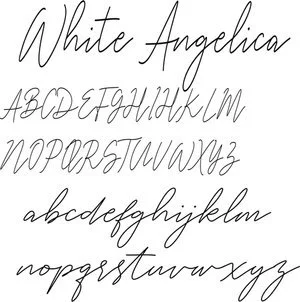 White Angelica
ABCDEFGHIJKLM
NOPQRSTUVWXYZ
abcdefghijklm
nopqrstuvwxyz